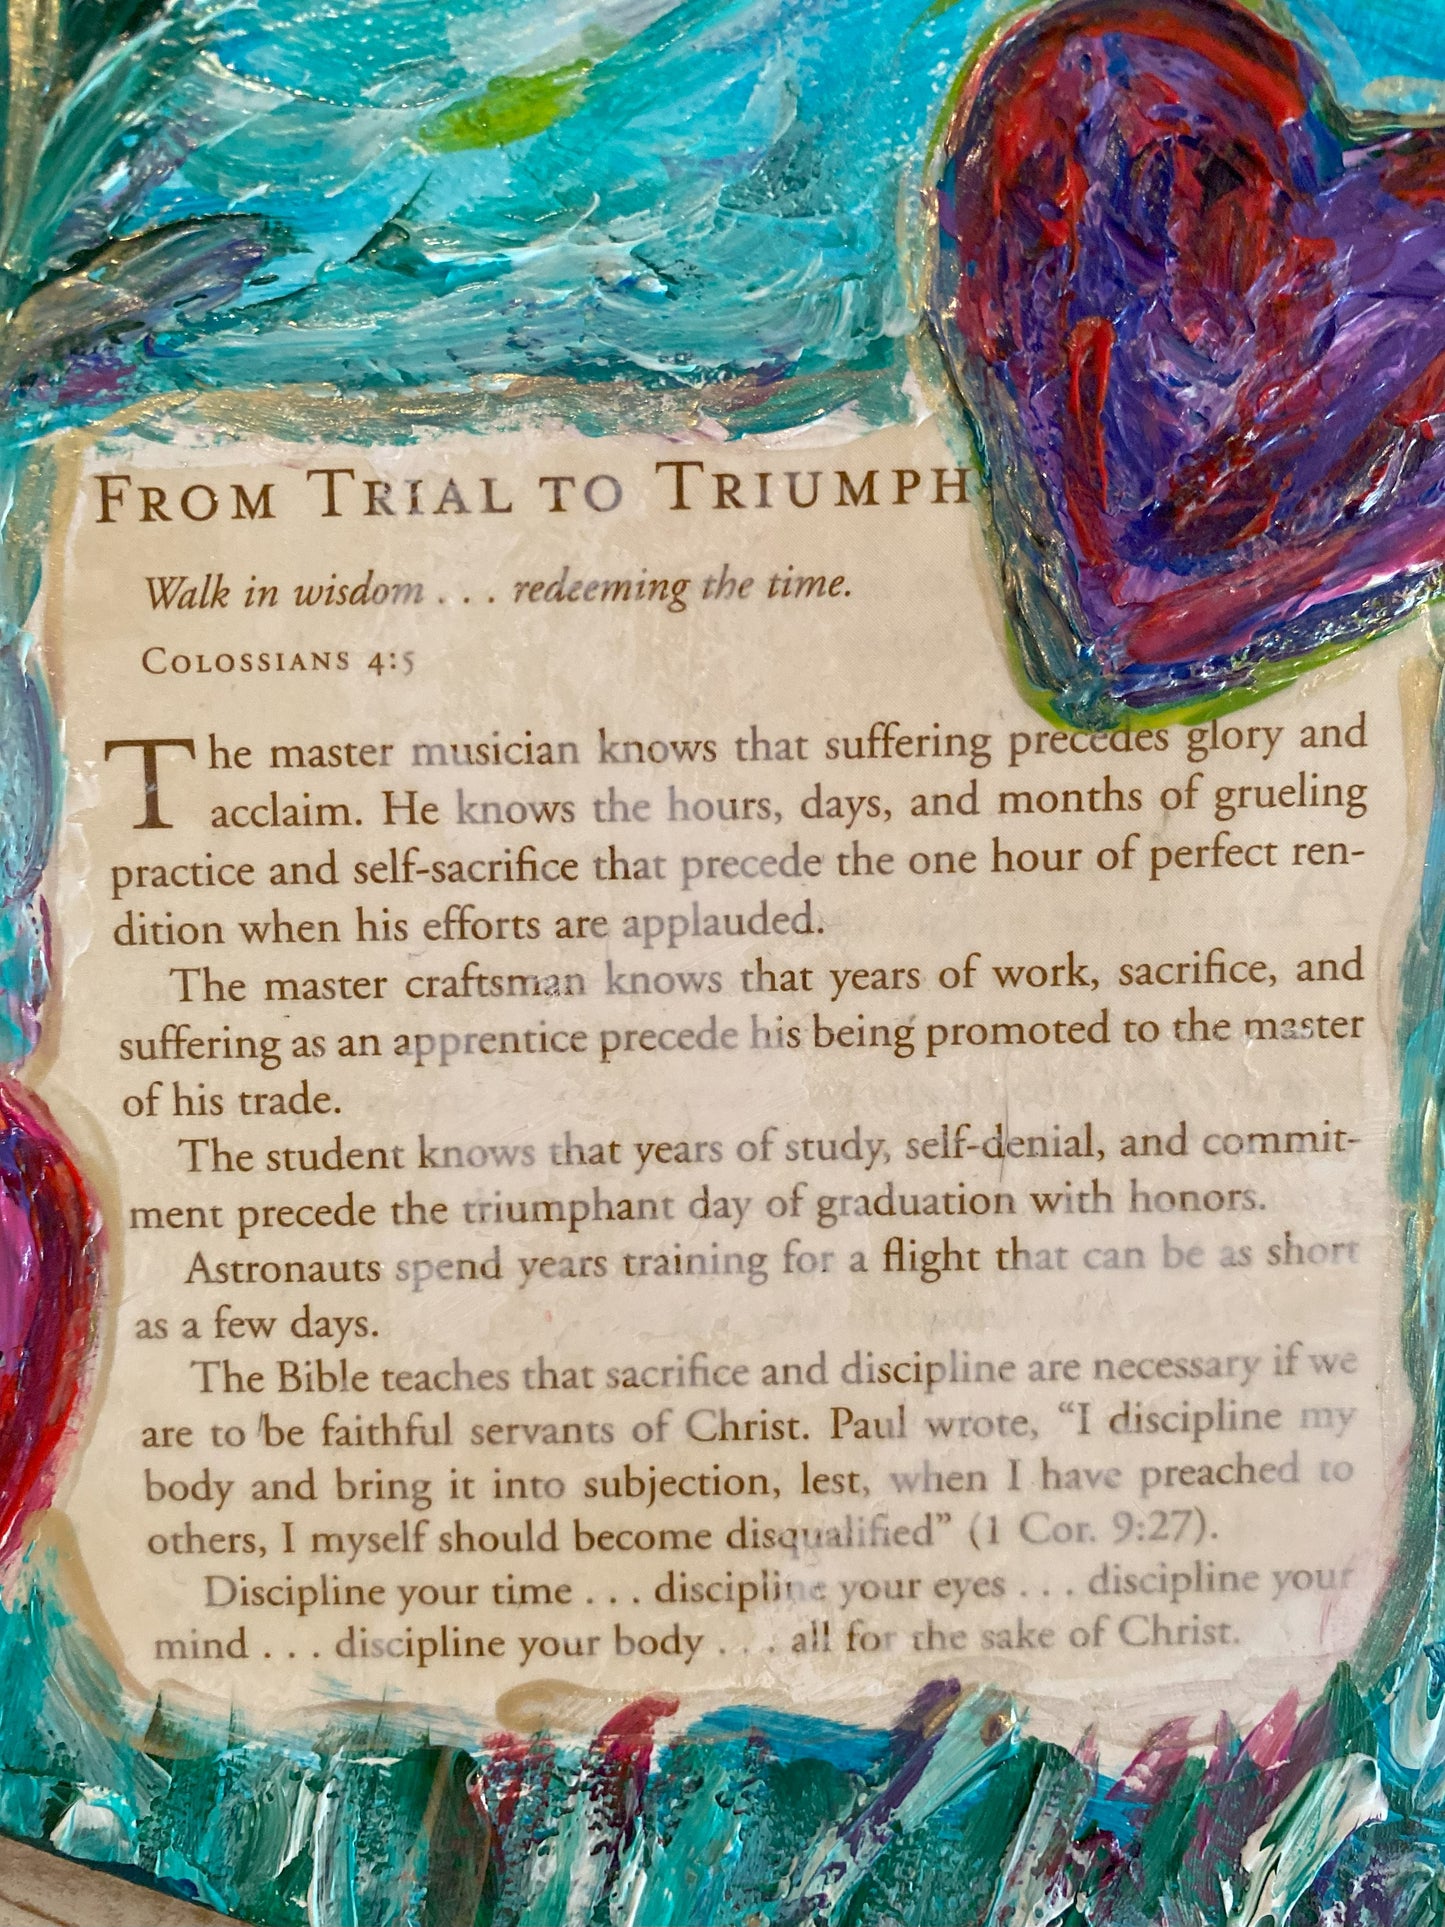 FROM TRIAL TO TRIUMPH
Walk in wisdom . . . redeeming the time.
COLOSSIANS 4:5
The master musician knows that suffering precedes glory and
acclaim. He knows the hours, days, and months of grueling
practice and self-sacrifice that precede the one hour of perfect ren-
dition when his efforts are applauded.
The master craftsman knows that years of work, sacrifice, and
suffering as an apprentice precede his being promoted to the master
of his trade.
The student knows that years of study, self-denial, and commit-
ment precede the triumphant day of graduation with honors.
Astronauts spend years training for a flight that can be as short
as a few days.
The Bible teaches that sacrifice and discipline are necessary if we
are to be faithful servants of Christ. Paul wrote, “I discipline my
body and bring it into subjection, lest, when I have preached to
others, I myself should become disqualified” (1 Cor. 9:27).
Discipline your time . . . discipline your eyes . . . discipline your
mind . . . discipline your body . . . all for the sake of Christ.